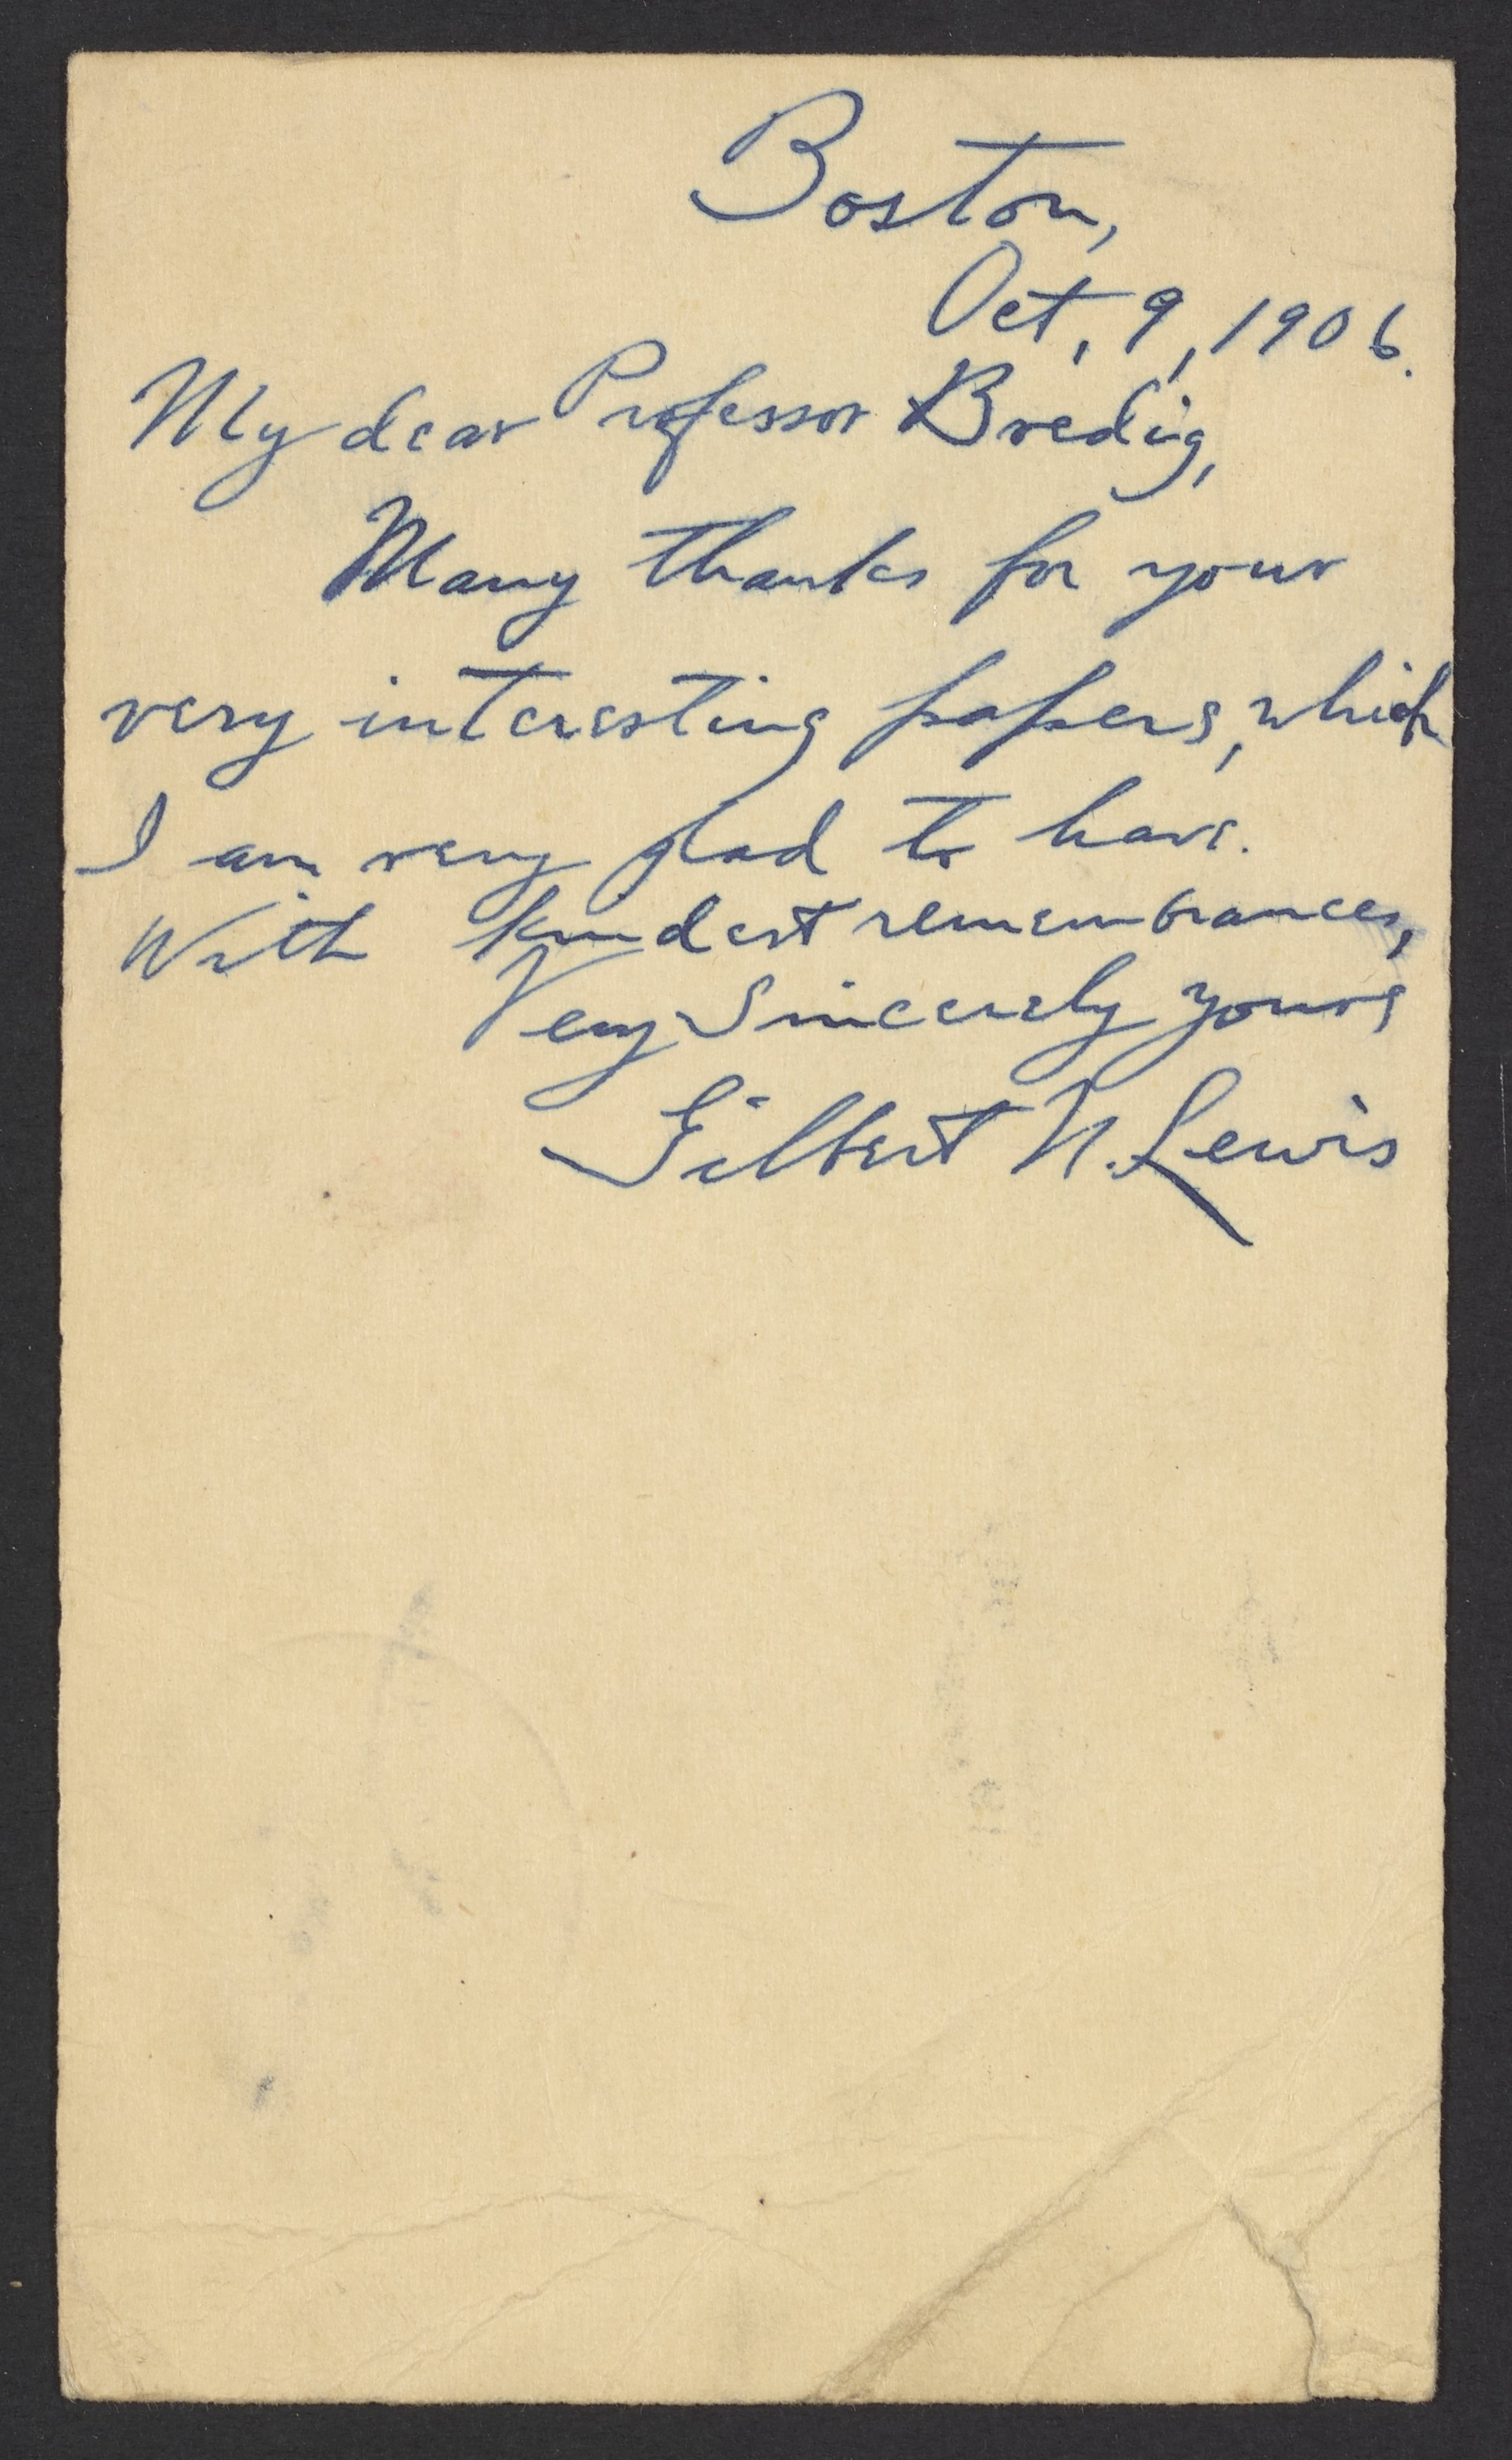 Boston,
Oct, 9, 1906.
My dear Professor Bredig,
Many thanks for your
very interesting papers, which
I am very glad to have.
With kindest remembrances,
Very Sincerely yours
Gilbert N. Lewis